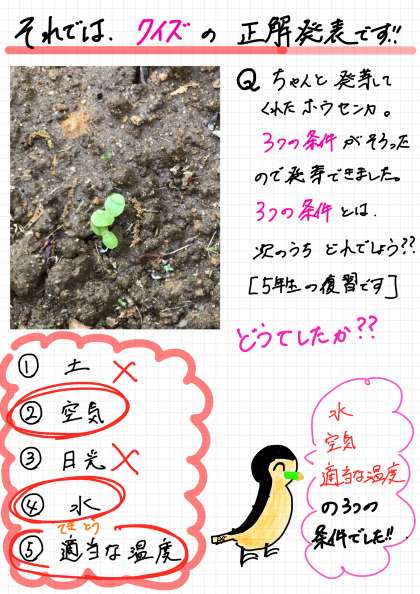 それでは、クイズの 正解発表です!!
Q ちゃんと 発芽して
くれた ホウセンカ。
3つの条件 がそろった
ので発芽できました。
3つの条件 とは、
次のうち どれでしょう??
[5年生の復習です]
どうでしたか??
① 土 ×
② 空気
③ 日光 ×
④ 水
てきとう
⑤ 適当な温度
水
空気
適当な温度
の3つの
条件でした!!